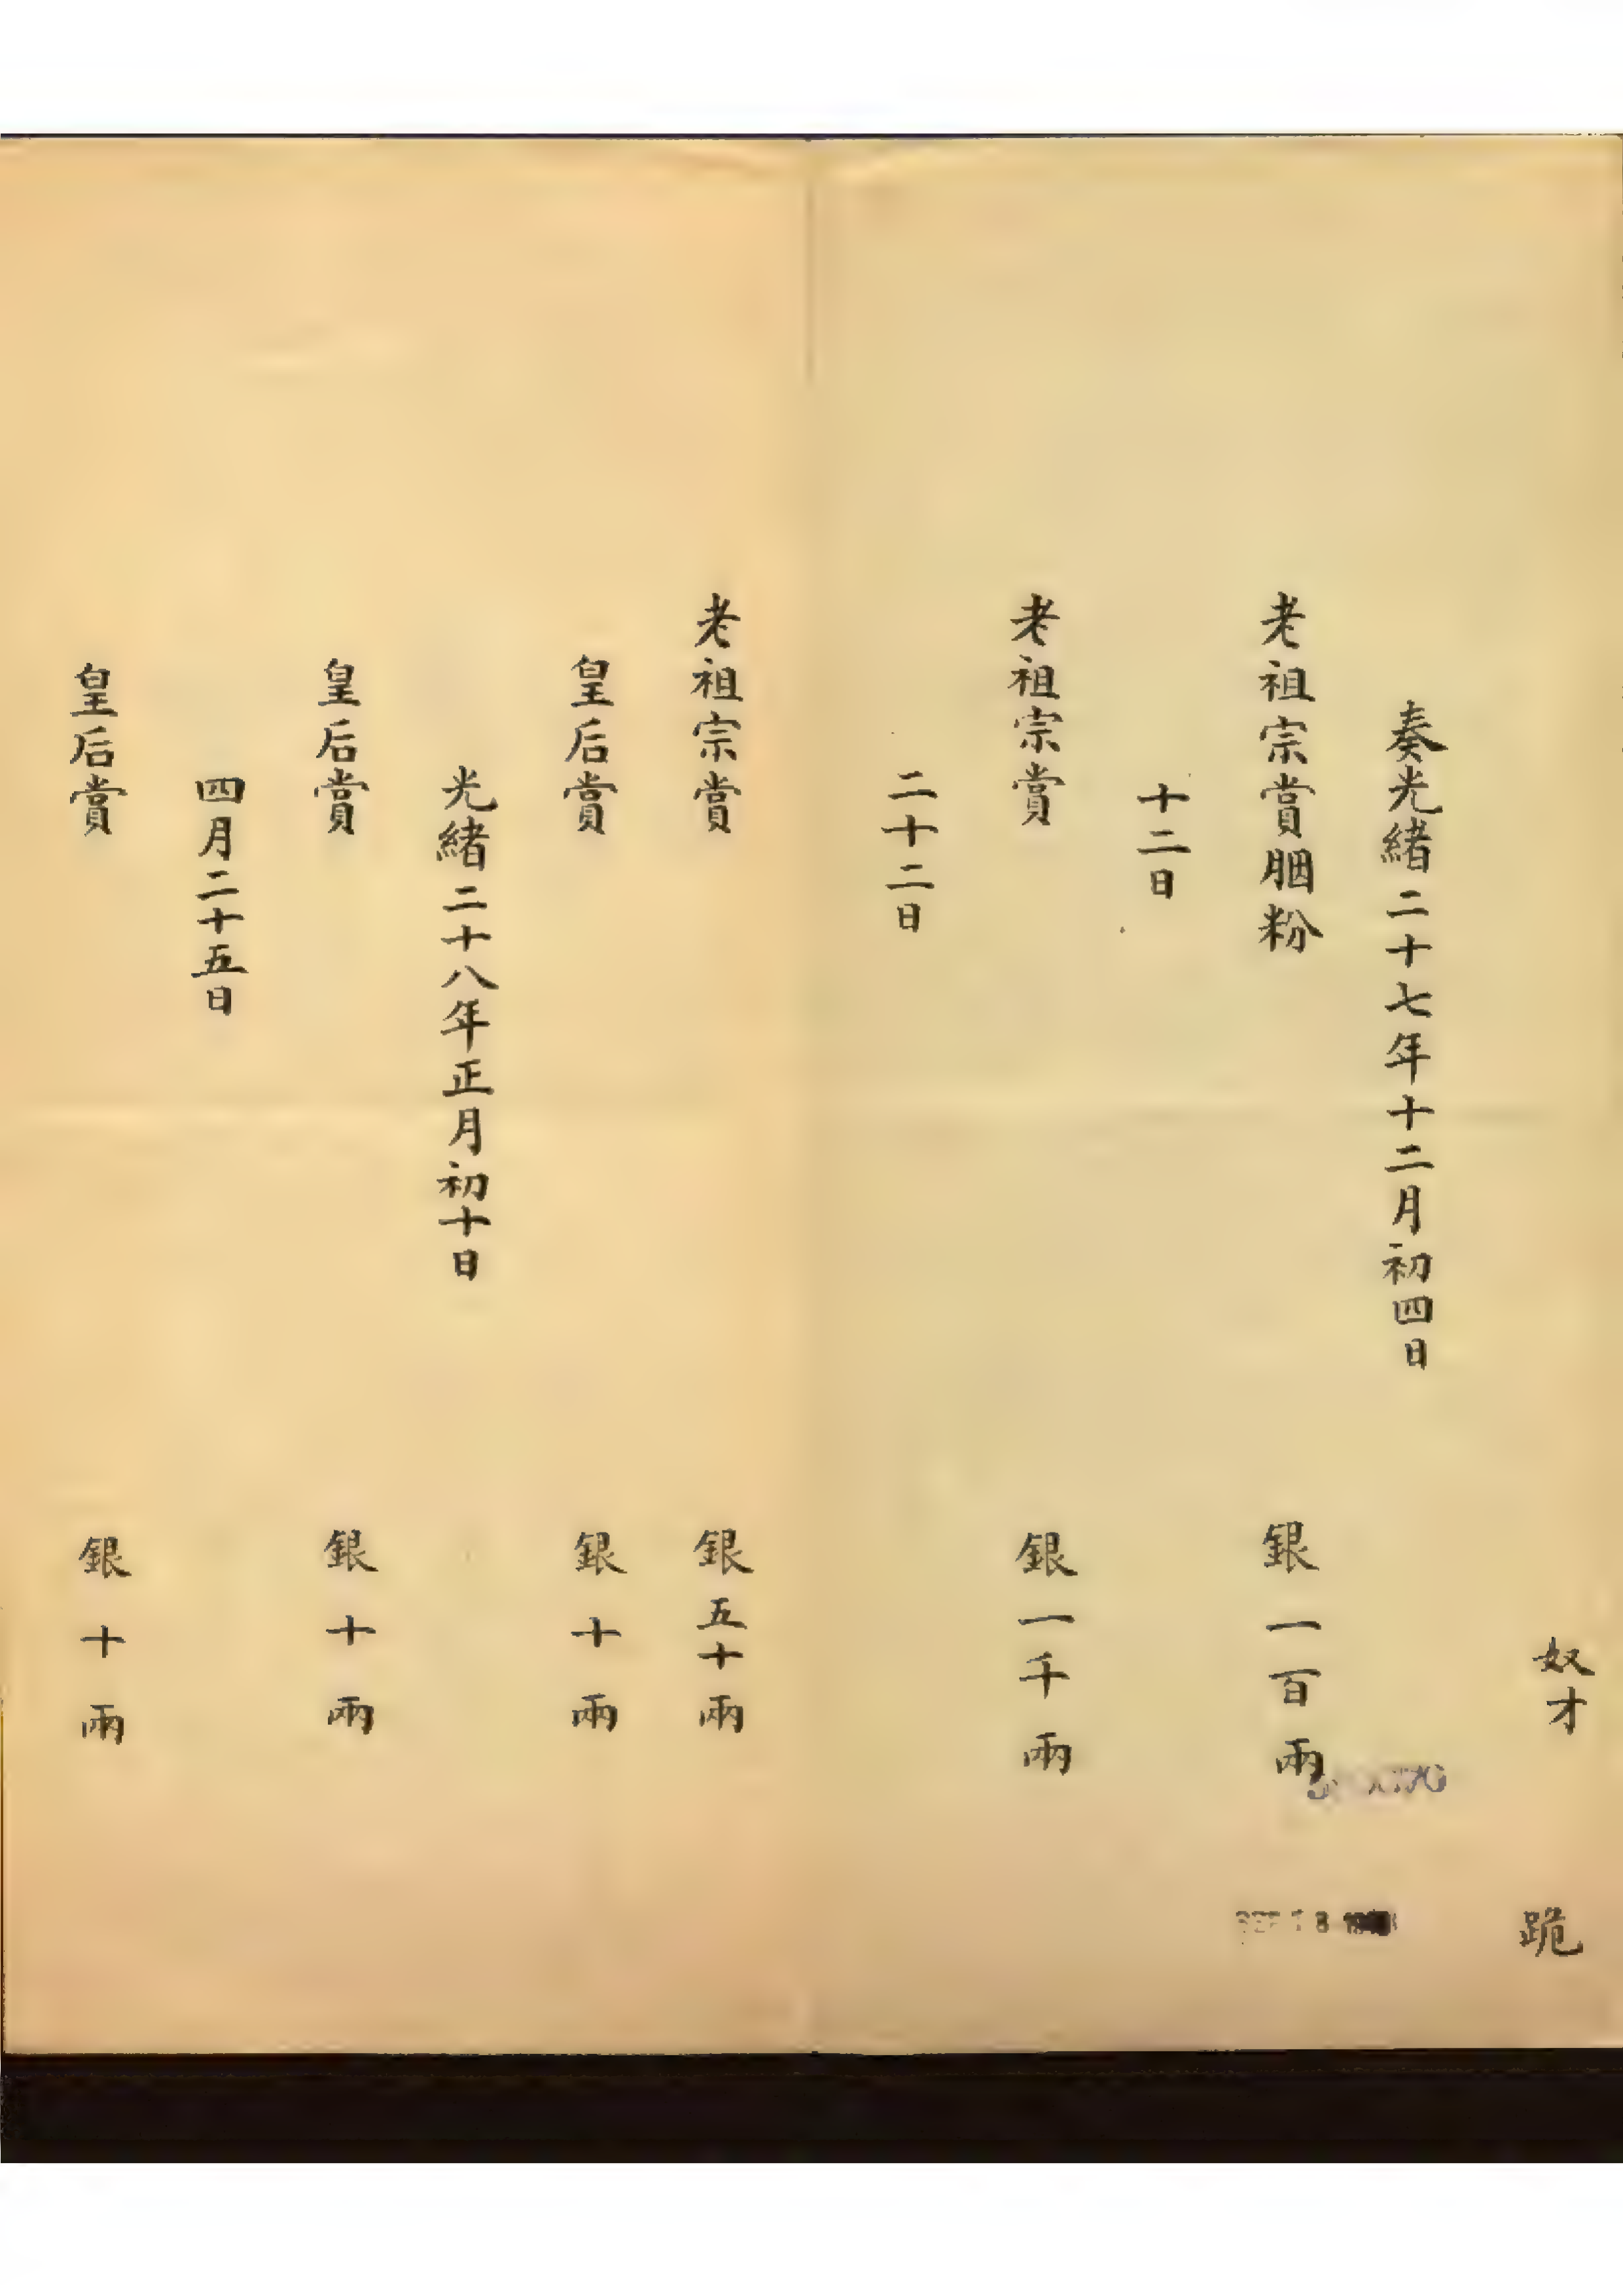 奴才　跪
奏光緒二十七年十二月初四日
老祖宗賞胭粉　銀一百兩
十二日
老祖宗賞　銀一千兩
二十二日
老祖宗賞　銀五十兩
皇后賞　銀十兩
光緒二十八年正月初十日
皇后賞　銀十兩
四月二十五日
皇后賞　銀十兩